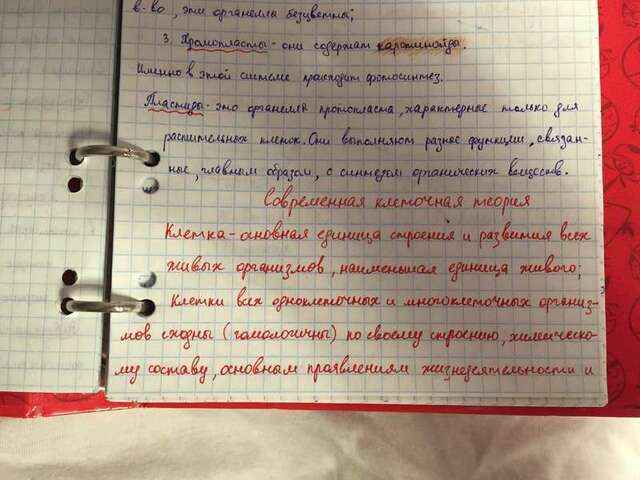 в-во, эти органеллы бесцветны;
3. Хромопласты - они содержат каротиноиды.
Именно в этой системе проходит фотосинтез.
Пластиды - это органеллы протопласта, характерные только для
растительных клеток. Они выполняют разные функции, связан-
ные, главным образом, с синтезом органических веществ.
Современная клеточная теория
Клетка - основная единица строения и развития всех
живых организмов, наименьшая единица живого;
Клетки всех одноклеточных и многоклеточных организ-
мов сходны (гомологичны) по своему строению, химическо-
му составу, основным проявлениям жизнедеятельности и